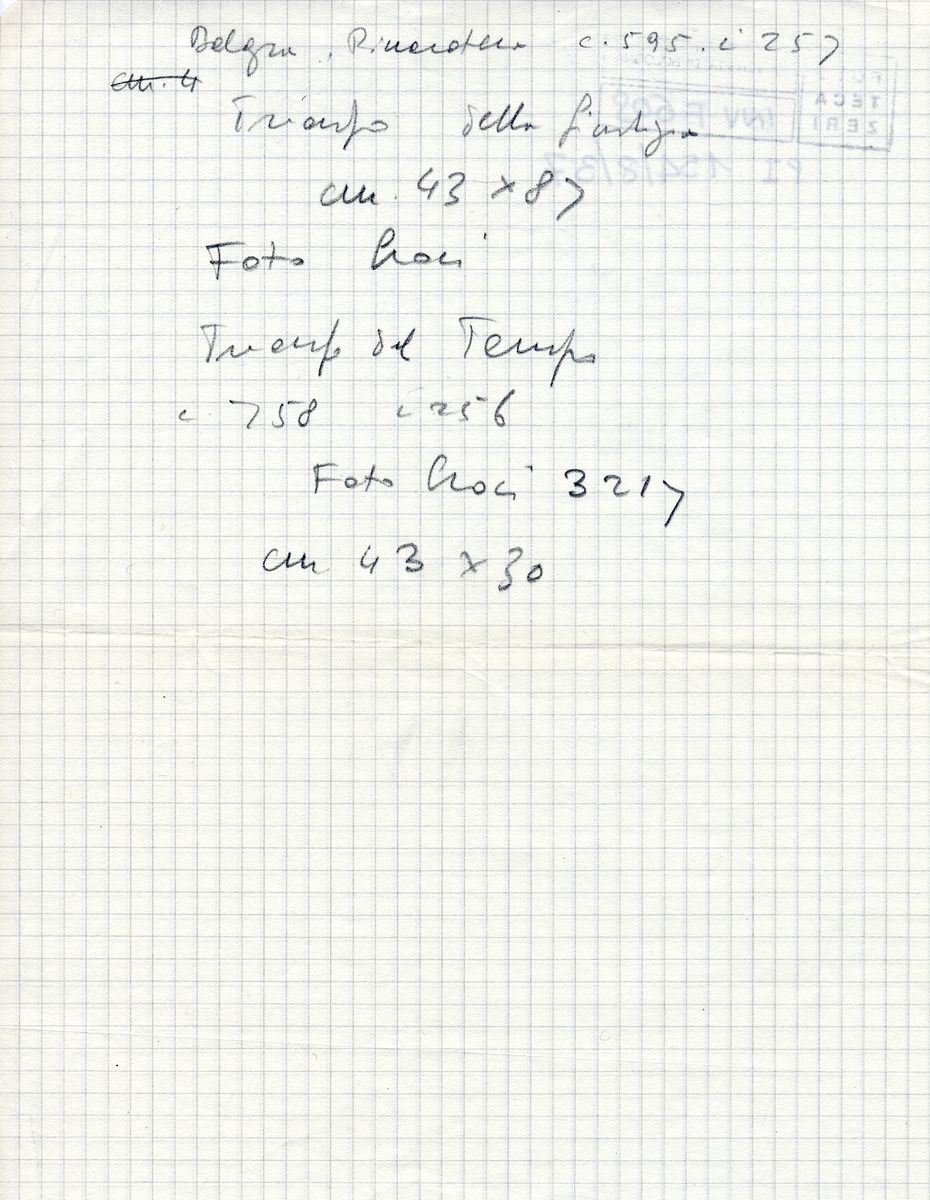 Bologna, Pinacoteca c. 595. i 257
cm. 4
Trionfo della Giustizia
cm. 43 x 87
Foto Croci
Trionfo del Tempo
c. 758 i 256
Foto Croci 3217
cm 43 x 30
FOTOTECA ZERI
INV F 609
PI 134/8/37